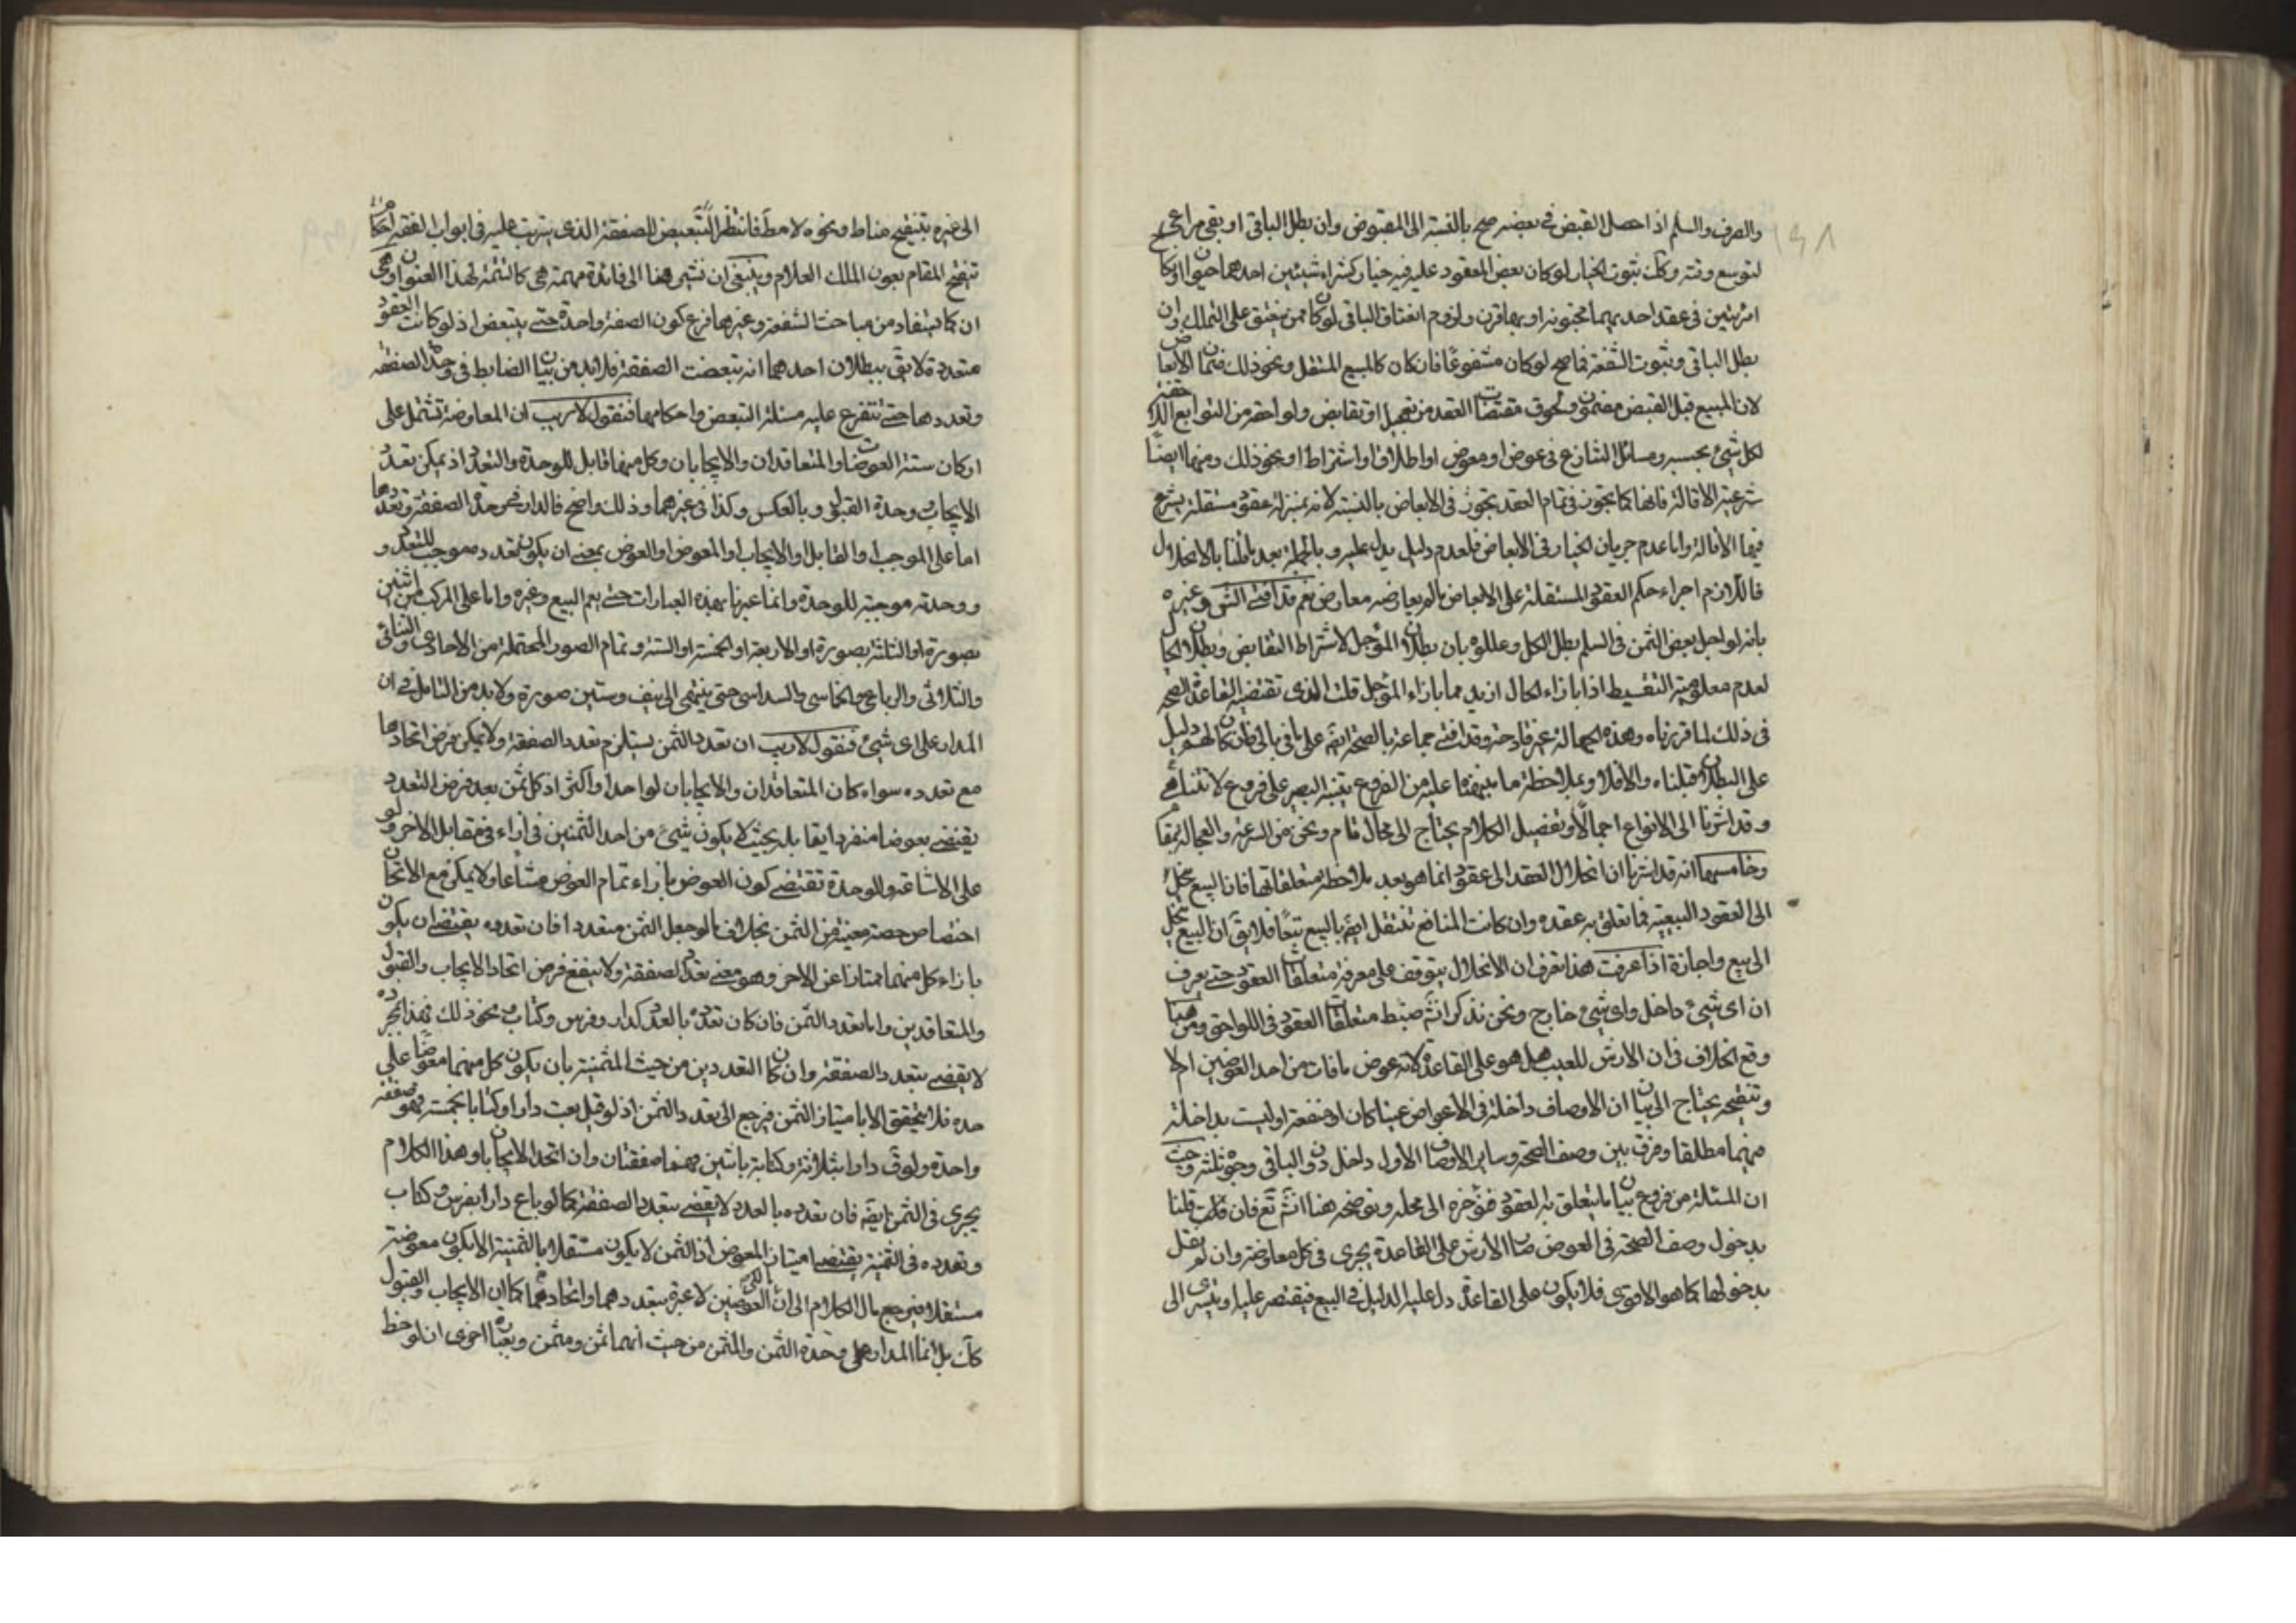 ١٩٨
والصرف والسلم اذا حصل القبض في بعضه صح بالنسبة الى المقبوض وان بطل الباقي او بقي مراعى
لتوسع وقته وكك ثبوت الخيار لو كان بعض المعقود عليه فيه خيار كشراء شيئين احدهما حيوان او كان
امرئتين في عقد احديهما مجنونة او بها قرن ولزوم انعتاق الباقي لو كان ممن ينعتق على التملك وان
بطل الباقي وثبوت الشفعة فيما صح لو كان مشفوعا فان كان كالمبيع المستقل ونحو ذلك ضمان الابعاض
لان المبيع قبل القبض مضمون ولحوق مقتضيات العقد من تعجيل او تقابض ولواحقه من التوابع
لكل شيئ بحسبه ومسائل التنازع في عوض او معوض او اطلاق او اشتراط او نحو ذلك ومنها ايضا
شرعية الاقالة فانها كما تجوز في تمام العقد تجوز في الابعاض بالنسبة لانه بمنزلة عقود مستقلة يشرع
فيها الاقالة واما عدم جريان الخيار في الابعاض فلعدم دليل يدل عليه وبالجملة بعد ما قلنا بالانحلال
فاللازم اجراء حكم العقود المستقلة على الابعاض ما لم يعارضه معارض نعم قد افتى الشيخ وغيره
بانه لو اجل بعض الثمن في السلم بطل الكل وعللوه بان بطلان المؤجل لاشتراط التقابض وبطلان الحال
لعدم معلومية التقسيط اذا بازاء الحال ازيد مما بازاء المؤجل قلت الذي تقتضيه القاعدة الصحة
في ذلك لما قررناه وهذه الجهالة غير قادحة وقد افتى جماعة بالصحة ايضا على ما في بالي فان كان لهم دليل
على البطلان قبلناه والا فلا وبملاحظة ما نبهنا عليه من الفروع يتنبه البصير على فروع لا تتناهى
وقد اشرنا الى الانواع اجمالا وتفصيل الكلام يحتاج الى مجال تام ونحن في السرعة والعجالة بمقام
وخامسها انه قد اشرنا ان انحلال العقد الى عقود انما هو بعد ملاحظة متعلقاتها فان البيع ينحل
الى العقود البيعية فيما تعلق به عقده وان كانت المنافع تنتقل ايضا بالبيع تبعا فلا يق ان البيع ينحل
الى بيع واجارة اذا عرفت هذا تعرف ان الانحلال يتوقف على معرفة متعلقات العقود حتى يعرف
ان اي شيئ داخل واي شيئ خارج ونحن نذكر انشاء ضبط متعلقات العقود في اللواحق ومن هنا
وقع الخلاف في ان الارش للعيب هل هو على القاعدة لانه عوض ما فات من احد العوضين ام لا
وتنقيحه يحتاج الى بيان ان الاوصاف داخلة في الاعواض عينا كان او منفعة او ليست بداخلة
فيهما مطلقا وفرق بين وصف الصحة وساير الاوصاف الاول داخل دون البواقي وجوه ثلثة وحيث
ان المسئلة من فروع بيان ما يتعلق به العقود فنؤخره الى محله ونوضحه هناك انش تع فان قلت قلنا
بدخول وصف الصحة في العوض صار الارش على القاعدة يجري في كل معاوضة وان لم نقل
بدخولها كما هو الاقوى فلا يكون على القاعدة دل عليه الدليل في البيع فيقتصر عليه او يتسرى الى
الى غيره بتنقيح مناط ونحوه لا مط فانتظر التبعيض الصفقة الذي يترتب عليه في ابواب الفقه احكام
تنقيح المقام بعون الملك العلام وينبغي ان نشير هنا الى فائدة مهمة هي كالتتمة لهذا العنوان وهي
ان كما يستفاد من مباحث الشفعة وغيرها فرع كون الصفقة واحدة حتى يتبعض اذ لو كانت العقود
متعددة لا يق ببطلان احدهما انه تبعضت الصفقة فلا بد من بيان الضابط في وحدة الصفقة
وتعددها حتى تتفرع عليه مسئلة التبعض واحكامها فنقول لا ريب ان المعاوضة تشتمل على
اركان ستة العوضان والمتعاقدان والايجابان وكل منهما قابل للوحدة والتعدد اذ يمكن تعدد
الايجاب ووحدة القبول وبالعكس وكذا في غيرهما وذلك واضح فالمدار في وحدة الصفقة وتعددها
اما على الموجب او القابل او الايجاب او المعوض او العوض بمعنى ان يكون تعدده موجب للتعدد و
ووحدته موجبة للوحدة وانما عبرنا بهذه العبارات حتى يعم البيع وغيره واما على المركب من اثنين
بصورة او الثلثة بصورة او الاربعة او الخمسة او الستة وتمام الصور المحتملة من الاحادي والثنائي
والثلاثي والرباعي والخماسي والسداسي حتى ينتهي الى نيف وستين صورة ولا بد من التامل في ان
المدار على اي شيئ فنقول لا ريب ان تعدد الثمن يستلزم تعدد الصفقة ولا يمكن فرض اتحادها
مع تعدده سواء كان المتعاقدان والايجابان لواحد او اكثر اذ كل ثمن بعد فرض التعدد
يقتضي بعوضا منفردا يقابله بحيث لا يكون شيئ من احد الثمنين في ازاء في مقابل الاخر ولو
على الاشاعة والوحدة تقتضي كون العوض بازاء تمام العوض مشاعا ولا يمكن مع الاتحاد
اختصاص حصة معينة من الثمن بخلاف ما لو جعل الثمن متعددا فان تعدده يقتضي ان يكون
بازاء كل منهما ممتازا عن الاخر وهو معنى تعدد الصفقة ولا ينفع فرض اتحاد الايجاب والقبول
والمتعاقدين واما تعدد الثمن فان كان تعدده بالعدد كدار وفرس وكتاب ونحو ذلك فهذا بمجرده
لا يقضي بتعدد الصفقة وان كان التعدد من حيث المثمنية بان يكون كل منهما معوضا على
حده فلا يتحقق الا بامتياز الثمن فيرجع الى تعدد الثمن اذ لو قيل بعت دارا وكتابا بخمسة فهو صفقة
واحدة ولو ق دارا بثلاثة وكتابة باثنين فهنا صفقتان وان اتحد الايجابان وهذا الكلام
يجري في الثمن ايضا فان تعدده بالعدد لا يقضي بتعدد الصفقة كما لو باع دارا بفرس وكتاب
وتعدده في الثمنية يقتضي امتياز المعوض اذ الثمن لا يكون مستقلا بالثمنية الا بكون معوضه
مستقلا فيرجع مال الكلام الى ان العوضين لا عبرة بتعددهما واتحادهما كما ان الايجاب والقبول
كك بل انما المدار على وحدة الثمن والمثمن من حيث انهما ثمن ومثمن وبعبارة اخرى ان لوحظ